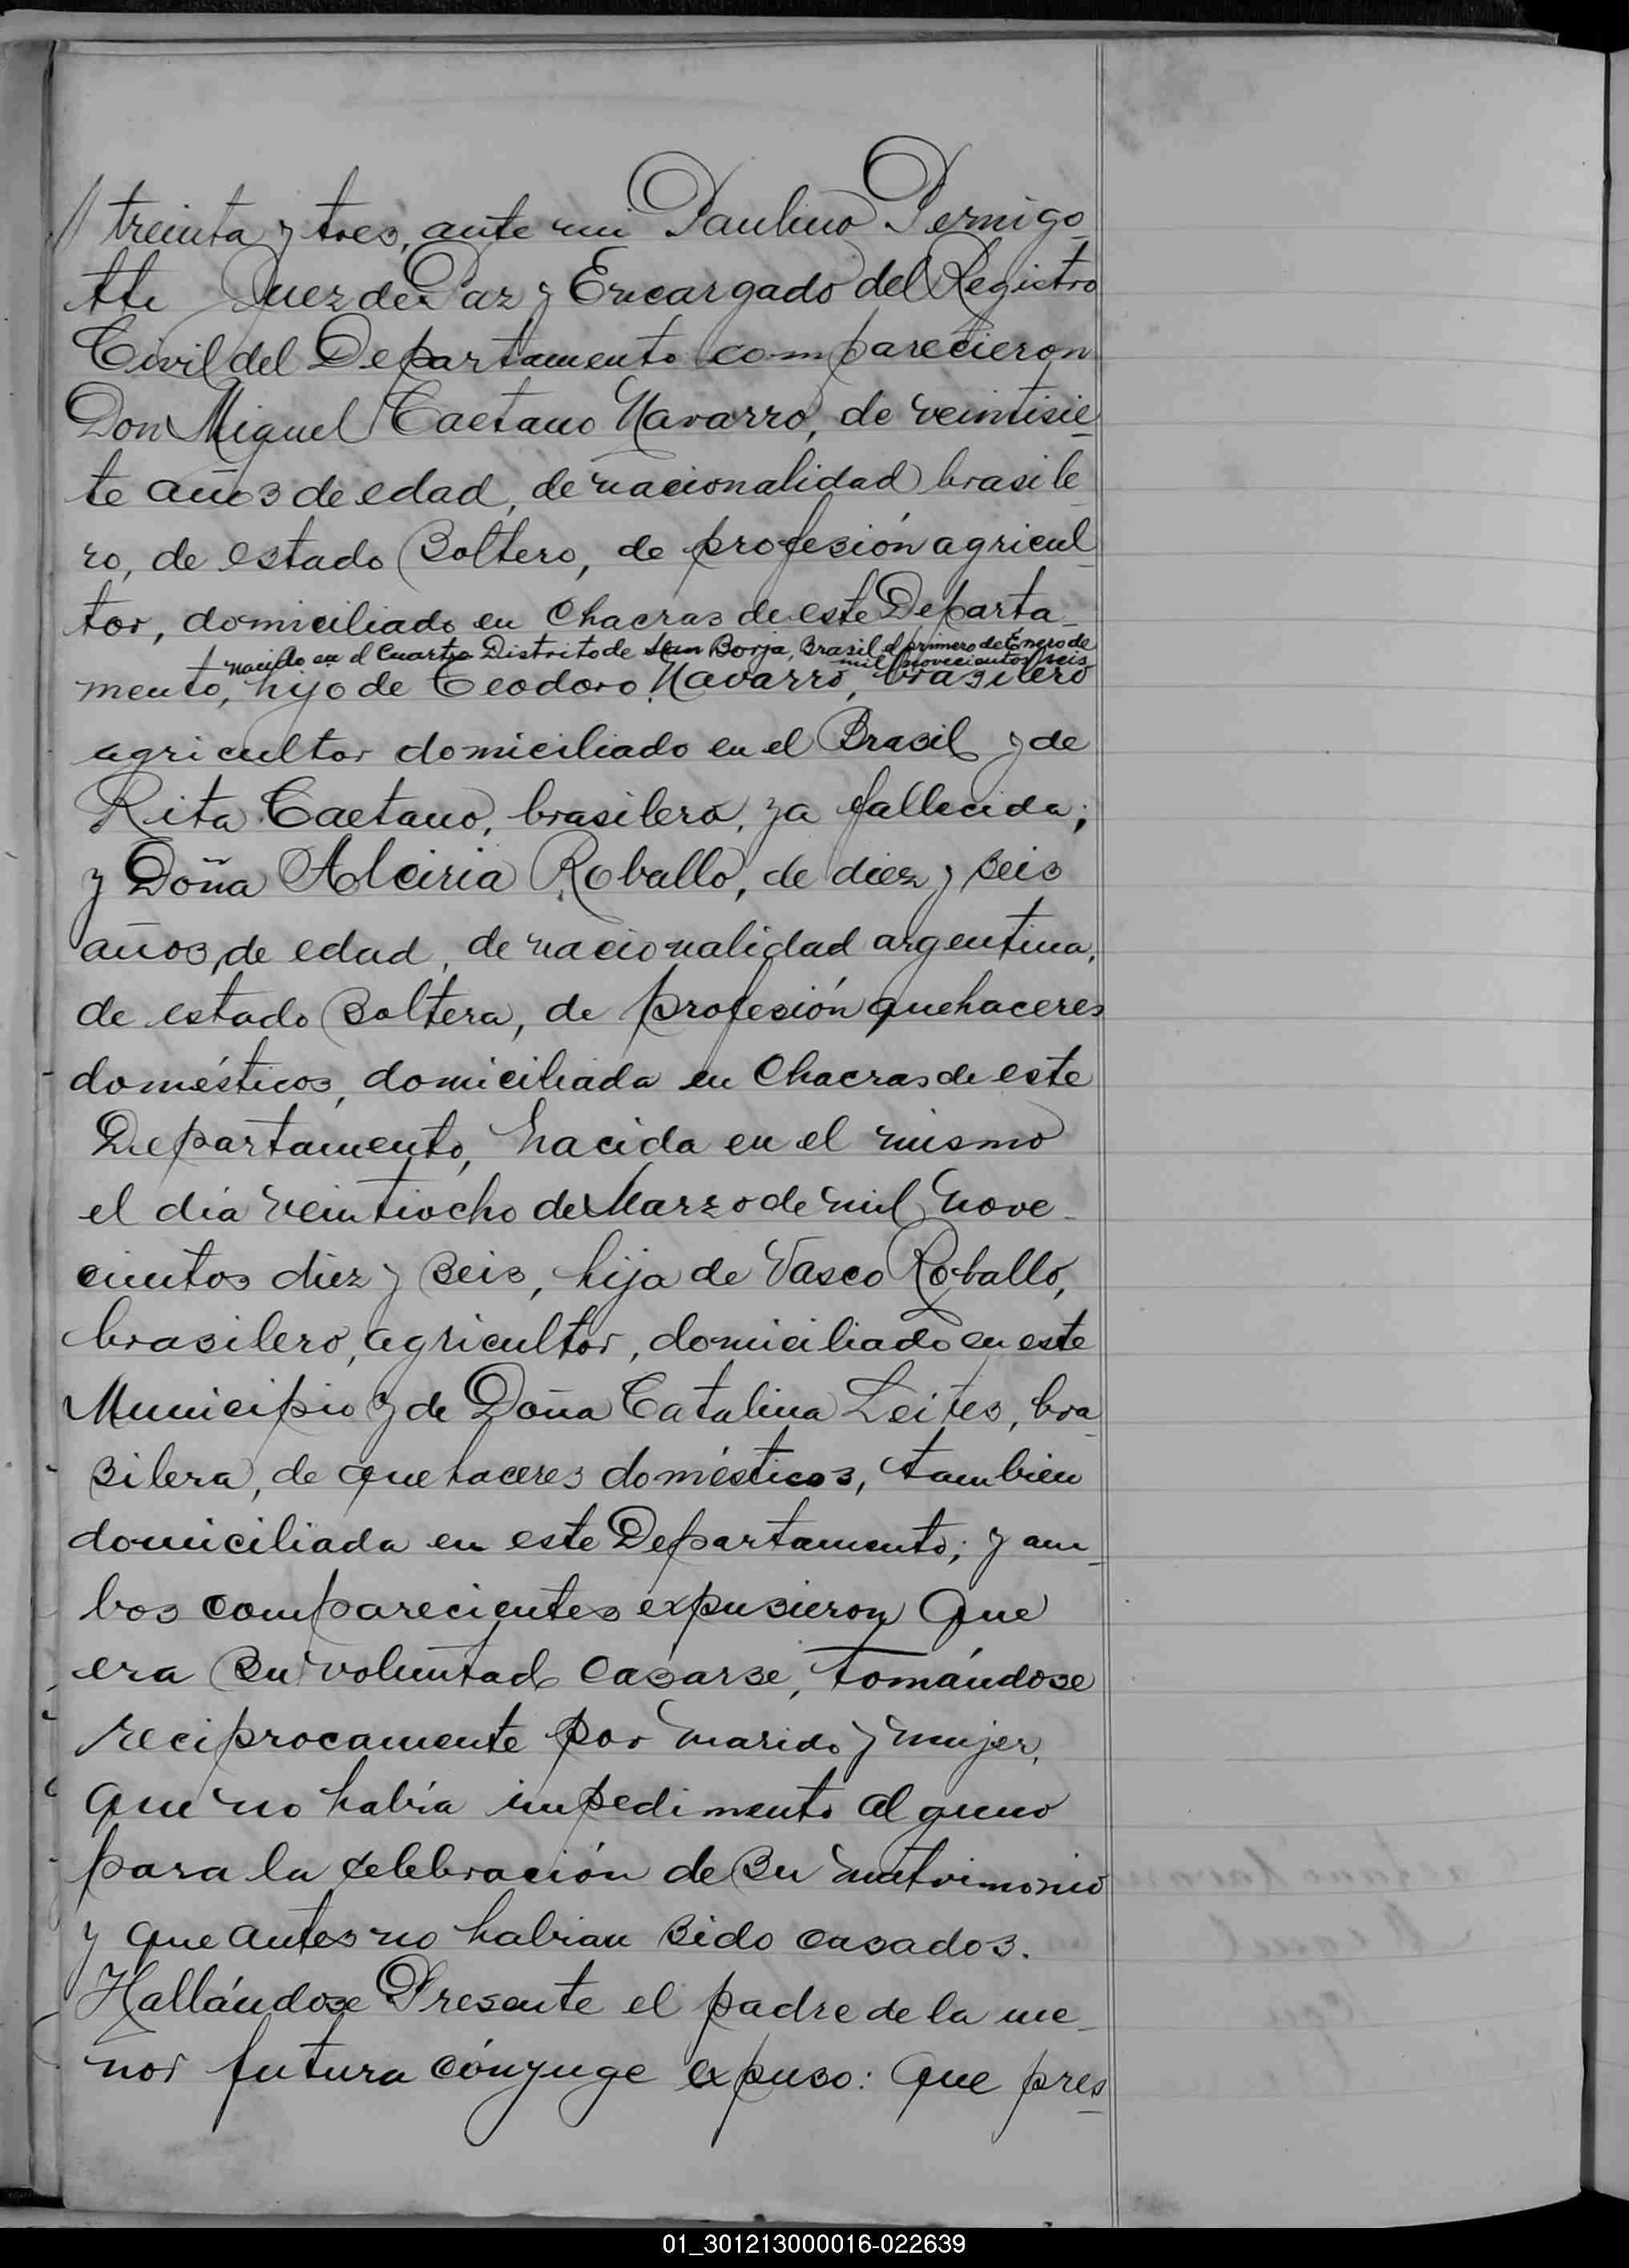 // treinta y tres, ante mi Paulino Pernigo-
tti Juez de Paz y Encargado del Registro
Civil del Departamento comparecieron
Don Miguel Caetano Navarro, de veintisie-
te años de edad, de nacionalidad brasile-
ro, de estado soltero, de profesión agricul-
tor, domiciliado en Chacras de este Departa-
nacido en el Cuarto Distrito de San Borja, Brasil el primero de Enero de
mil novecientos seis
mento, hijo de Teodoro Navarro, brasilero
agricultor domiciliado en el Brasil y de
Rita Caetano, brasilera, ya fallecida;
y Doña Alciria Roballo, de diez y seis
años de edad, de nacionalidad argentina,
de estado soltera, de profesión quehaceres
domésticos, domiciliada en Chacras de este
Departamento, nacida en el mismo
el día veintiocho de Marzo de mil nove-
cientos diez y seis, hija de Vasco Roballo,
brasilero, agricultor, domiciliado en este
Municipio y de Doña Catalina Leites, bra-
silera, de quehaceres domésticos, tambien
domiciliada en este Departamento; y am-
bos comparecientes expusieron que
era su voluntad casarse, tomándose
reciprocamente por marido y mujer,
que no había impedimento alguno
para la celebración de su matrimonio
y que antes no habian sido casados.
Hallándose Presente el padre de la me-
nor futura cónyuge expuso: que pres-
01_301213000016-022639